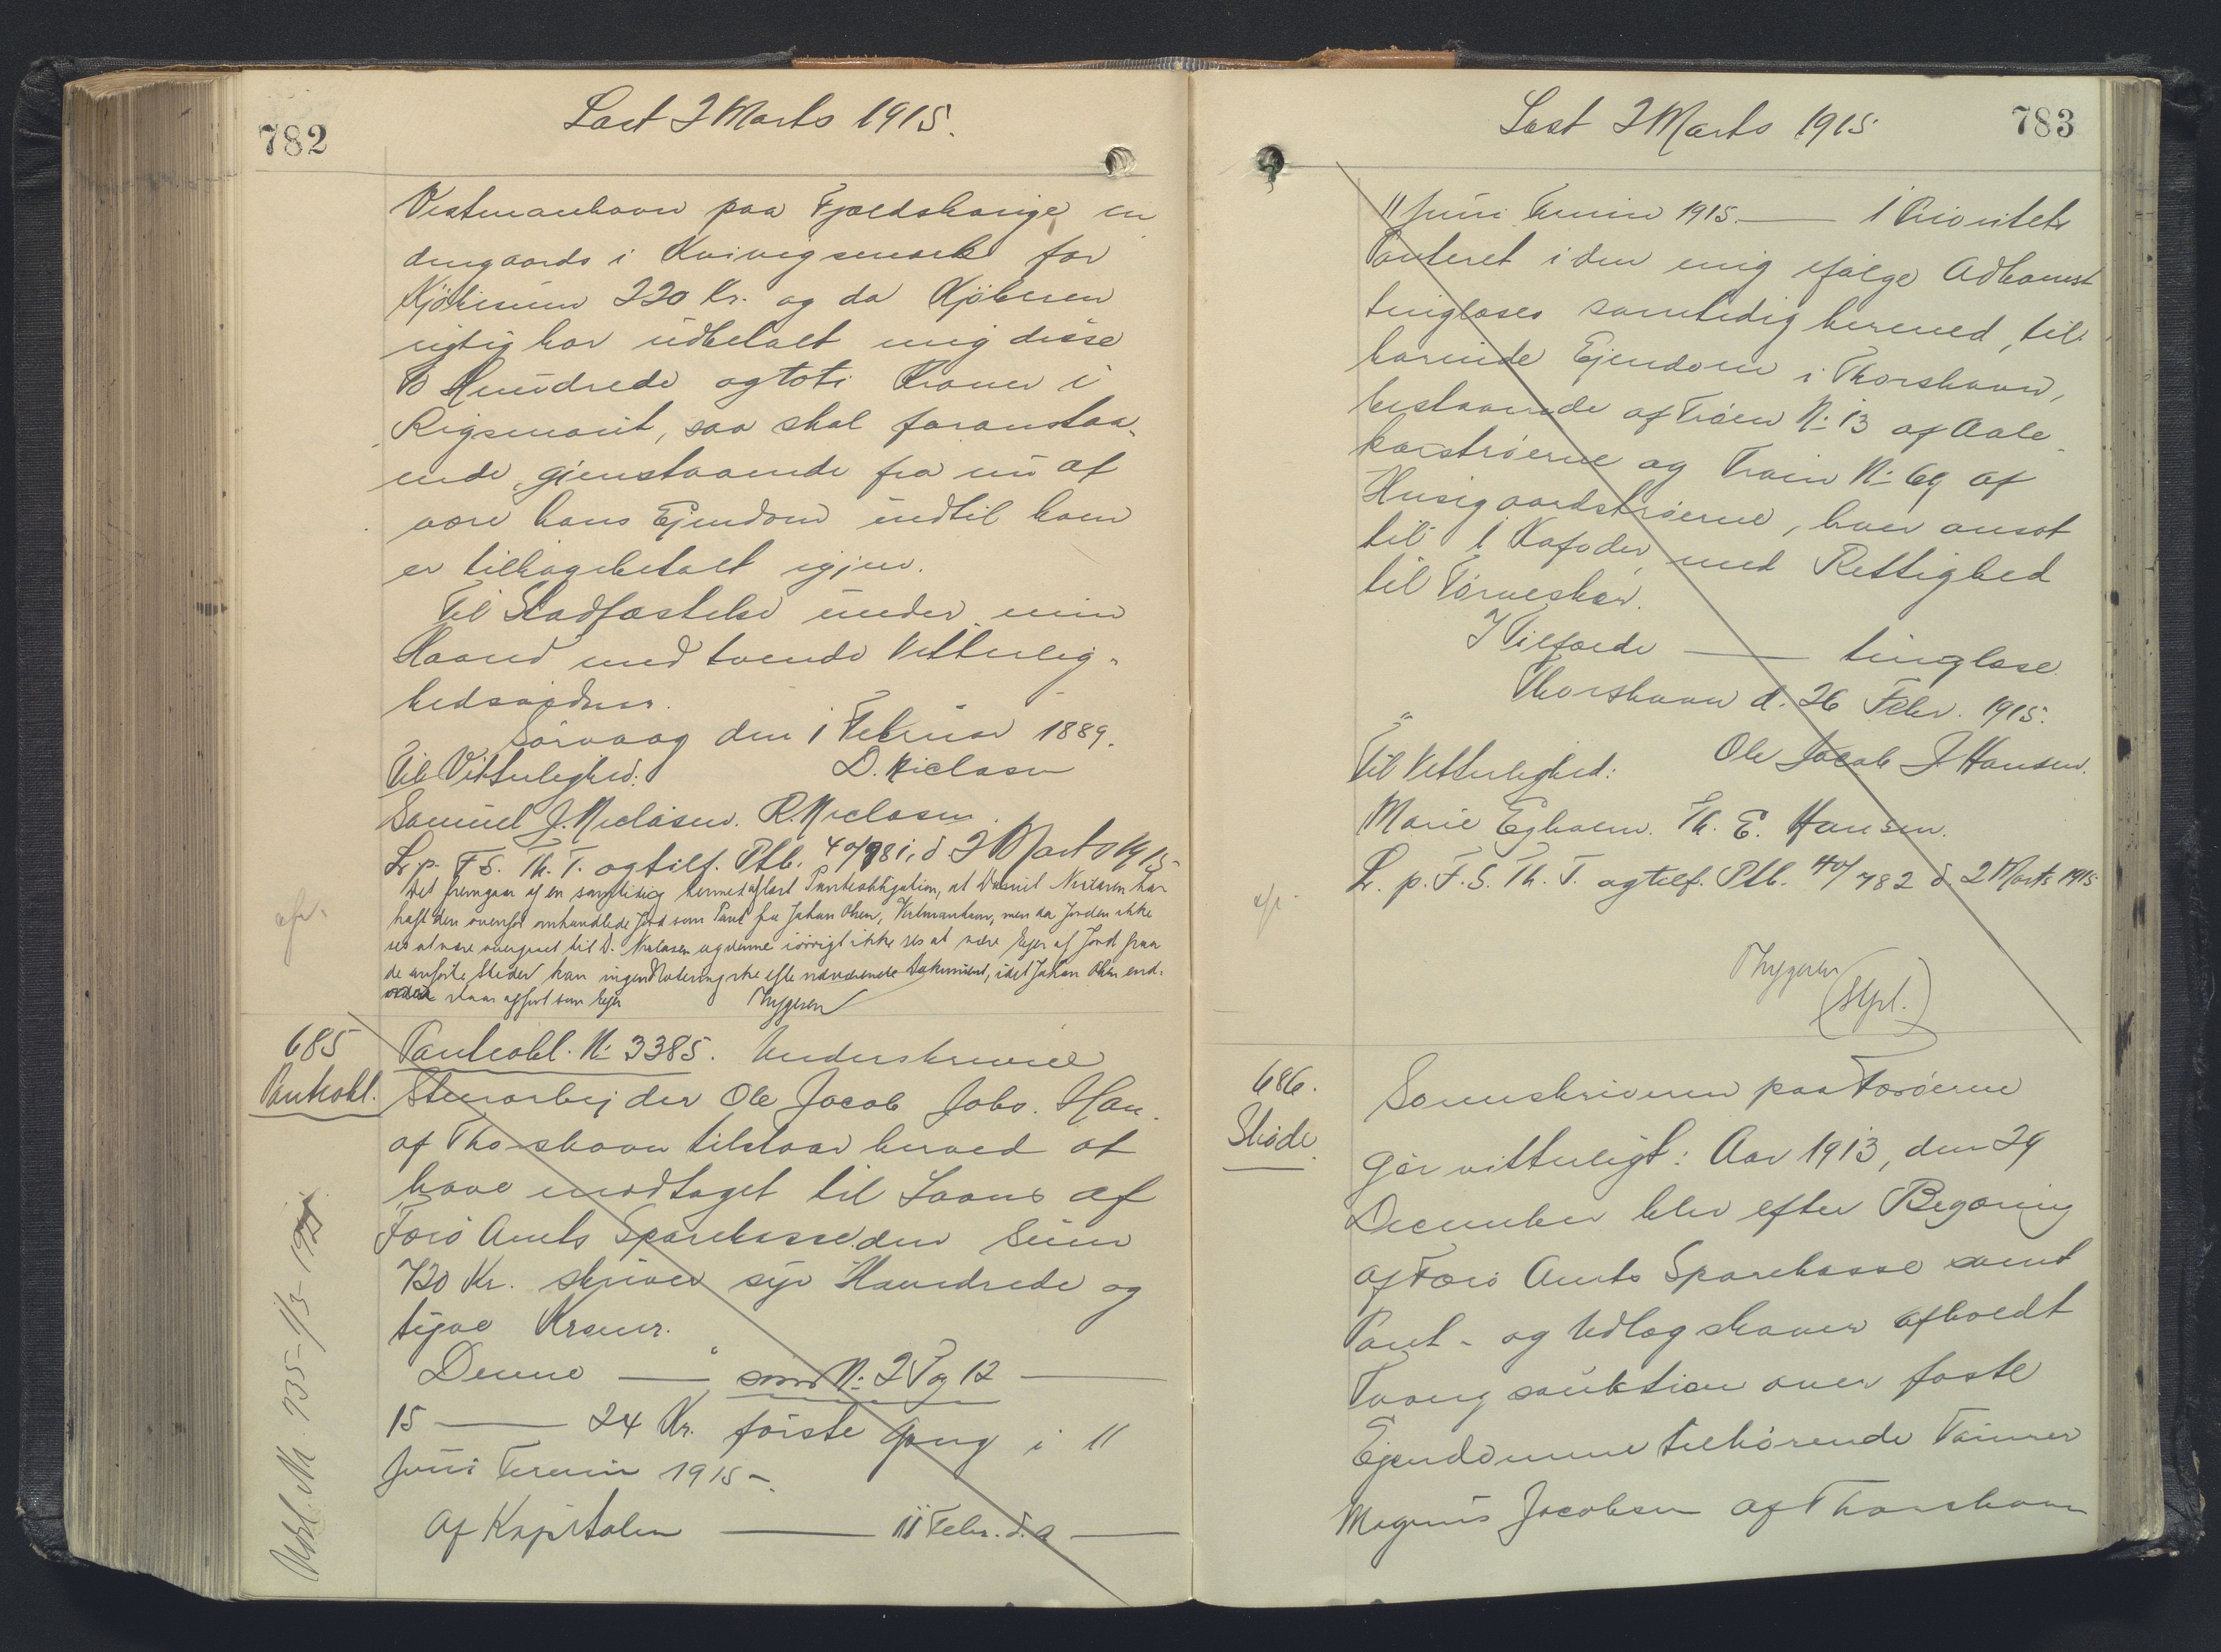 782
Læst 2 Marts 1915.
Vestmanhavn paa Fjældshauge en
dengaards i Kvivigsmark for
Kjöbesum 220 Kr. og da Kjöberen
rigtig har udbetalt mig disse
to Hundrede og toti Kroner i
Rigsmönt, saa skal foranstaa-
ende gjenstaaende fra nu af
være hans Ejendom indtil ham
er tilbagebetalt igjen.
Til Stadfæstelse under min
Haand med tvende Vitterlig-
hedsvidner.
Sörvaag den 1 Februar 1889.
Til Vitterlighed: D. Niclasen
Samuel J. Niclasen. R. Niclasen.
L. p. F. S. Th. T. og tilf. Ptb. 40/781, d. 2 Marts 1915.
Det fremgaar af en samtidig hermed aflæst Panteobligation, at Daniel Niclasen har
haft den ovenfor omhandlede Jord som Pant fra Johan Olsen, Vestmanhavn, men da Jorden ikke
ses at være overgaaet til D. Niclasen og denne iövrigt ikke ses at være Ejer af Jord fraa
de anförte Steder kan ingen Notering ske efter nærværende Dokument, idet Johan Olsen end-
staar opfört som Ejer Thygesen
afr.
685
Pantobl.
Pantobl. No 3385. Underskrevne
Stenarbejder Ole Jacob Johs. Han.
af Thorshavn tilstaar herved at
have modtaget til Laans af
Færö Amts Sparekasse den Sum
720 Kr. skriver syv Hundrede og
tyve Kroner.
Denne — som No 2 Pag 12 —
15 — 24 Kr. förste Gang i 11
Juni Termin 1915 -
Af Kapitalen — 11 Febr. d. A —
Udsl. M. 735 - 1/3 -
783
Læst 2 Marts 1915
11 Juni Termin 1915. — 1 Prioritets
Panteret i den mig ifølge Adkomst
tinglæses samtidig hermed, til-
hørende Ejendom i Thorshavn,
bestaaende af Tröen No 13 af Aale-
kærströerne og Tröen No 69 af
Husigaardströerne, hver ansat
til 1 Kofoder, med Rettighed
til Törveskær.
I Tilfælde — tinglæse.
Thorshavn d. 26 Febr. 1915.
Til Vitterlighed: Ole Jacob J. Hansen.
Marie Egholm. Th. E. Hansen.
L. p. F. S. Th. T. og tilf. Ptb. 40/782 d. 2 Marts 1915
afr.
Thygesen
686.
Sköde.
Sorenskriveren paa Færöerne
gör vitterligt: Aar 1913, den 29
December blev efter Begæring
af Færö Amts Sparekasse samt
Pant- og Udlægshaver afholdt
Tvangsauktion over faste
Ejendomme tilhörende Tömrer
Magnus Jacobsen af Thorshavn